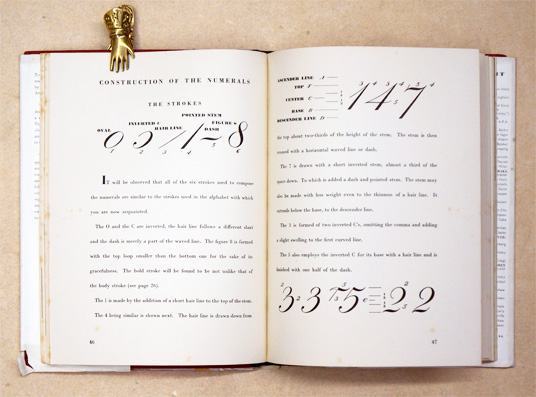 CONSTRUCTION OF THE NUMERALS
THE STROKES
POINTED STEM
OVAL INVERTED C HAIR LINE DASH FIGURE 8
1 2 3 4 5 6
It will be observed that all of the six strokes used to compose
the numerals are similar to the strokes used in the alphabet with which
you are now acquainted.
The O and the C are inverted, the hair line follows a different slant
and the dash is merely a part of the waved line. The figure 8 is formed
with the top loop smaller than the bottom one for the sake of its
gracefulness. The bold stroke will be found to be not unlike that of
the body stroke (see page 26).
The 1 is made by the addition of a short hair line to the top of the stem.
The 4 being similar is shown next. The hair line is drawn down from
46
ASCENDER LINE A
TOP F
CENTER C
BASE B
DESCENDER LINE D
1 4 7
the top about two-thirds of the height of the stem. The stem is then
crossed with a horizontal waved line or dash.
The 7 is drawn with a short inverted stem, almost a third of the
space down. To which is added a dash and pointed stem. The stem may
also be made with less weight even to the thinness of a hair line. It
extends below the base, to the descender line.
The 3 is formed of two inverted C's, omitting the comma and adding
a slight swelling to the first curved line.
The 5 also employs the inverted C for its base with a hair line and is
finished with one half of the dash.
3 3 5 5 2 2
47